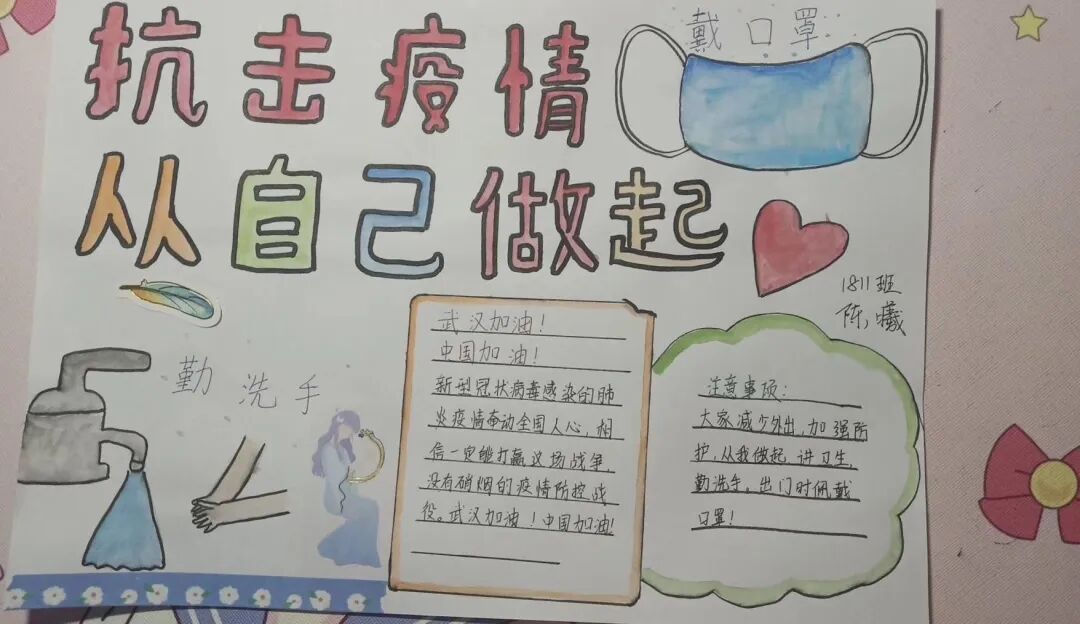 抗击疫情
戴口罩
从自己做起
1811班
陈曦
勤洗手
武汉加油!
中国加油!
新型冠状病毒感染的肺
炎疫情牵动全国人心,相
信一定能打赢这场战争,
没有硝烟的疫情防控战
役。武汉加油!中国加油!
注意事项:
大家减少外出,加强防
护,从我做起 讲卫生
勤洗手,出门时佩戴
口罩!